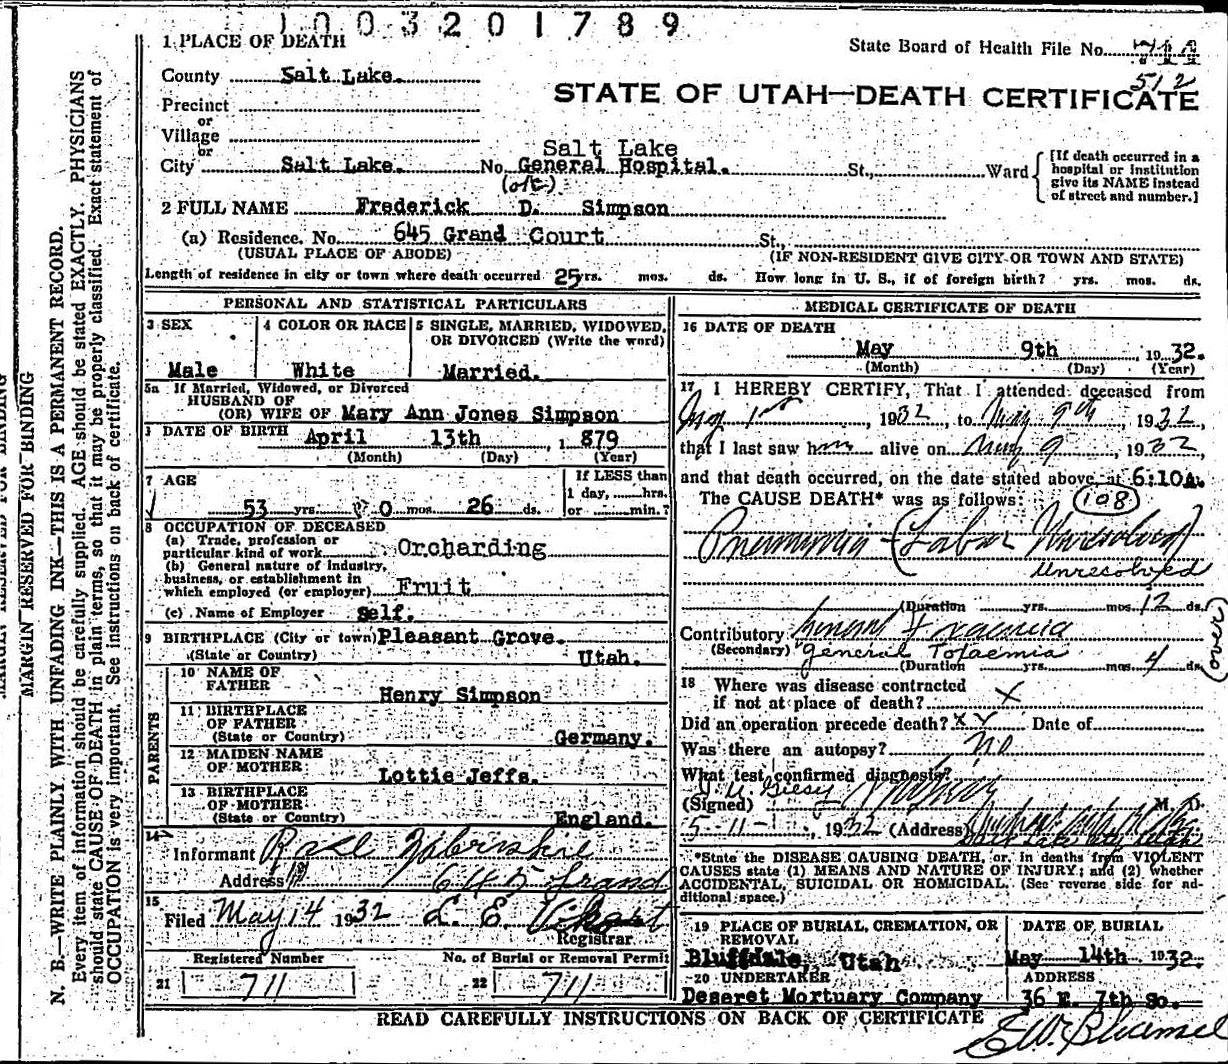 1003201789
1 PLACE OF DEATH
State Board of Health File No. 711
512
County Salt Lake.
STATE OF UTAH—DEATH CERTIFICATE
Precinct
or
Village
or
City Salt Lake. No. Salt Lake General Hospital. St., Ward
[If death occurred in a hospital or institution give its NAME instead of street and number.]
2 FULL NAME Frederick D. Simpson
(a) Residence. No. 645 Grand Court St.,
(USUAL PLACE OF ABODE) (IF NON-RESIDENT GIVE CITY OR TOWN AND STATE)
Length of residence in city or town where death occurred 25 yrs. mos. ds. How long in U. S., if of foreign birth? yrs. mos. ds.
PERSONAL AND STATISTICAL PARTICULARS
3 SEX
Male
4 COLOR OR RACE
White
5 SINGLE, MARRIED, WIDOWED, OR DIVORCED (Write the word)
Married.
5a If Married, Widowed, or Divorced
HUSBAND OF
(OR) WIFE OF Mary Ann Jones Simpson
DATE OF BIRTH April 13th 1879
(Month) (Day) (Year)
7 AGE
53 yrs. 0 mos. 26 ds.
If LESS than
1 day, hrs.
or min.?
8 OCCUPATION OF DECEASED
(a) Trade, profession or
particular kind of work Orcharding
(b) General nature of industry,
business, or establishment in
which employed (or employer) Fruit
(c) Name of Employer Self.
9 BIRTHPLACE (City or town) Pleasant Grove.
(State or Country) Utah.
PARENTS
10 NAME OF FATHER
Henry Simpson
11 BIRTHPLACE OF FATHER
(State or Country) Germany.
12 MAIDEN NAME OF MOTHER
Lottie Jeffs.
13 BIRTHPLACE OF MOTHER
(State or Country) England.
14
Informant
Address 645 Grand
15
Filed May 14 1932 L. E.
Registrar
Registered Number
No. of Burial or Removal Permit
21 711
22 711
MEDICAL CERTIFICATE OF DEATH
16 DATE OF DEATH
May 9th, 1932.
(Month) (Day) (Year)
17 I HEREBY CERTIFY, That I attended deceased from
1st, 1932, to May 9th, 1932,
that I last saw him alive on May 9, 1932,
and that death occurred, on the date stated above, at 6:10A.
The CAUSE DEATH* was as follows: 108
Pneumonia - (Lobar Unresolved)
Unresolved
(Duration yrs. mos. 12 ds.
Contributory General Toxaemia
(Secondary) general Toxaemia
(Duration yrs. mos. 4 ds.
(over)
18 Where was disease contracted
if not at place of death? X
Did an operation precede death? X Date of
Was there an autopsy? No
What test confirmed diagnosis?
(Signed) J. U. Giesy M. D.
5-11-, 1932 (Address)
Salt Lake City Utah
*State the DISEASE CAUSING DEATH, or, in deaths from VIOLENT
CAUSES state (1) MEANS AND NATURE OF INJURY; and (2) whether
ACCIDENTAL, SUICIDAL OR HOMICIDAL. (See reverse side for additional space.)
19 PLACE OF BURIAL, CREMATION, OR REMOVAL
Bluffdale, Utah
DATE OF BURIAL
May 14th 1932.
20 UNDERTAKER
Deseret Mortuary Company
ADDRESS
36 E. 7th So.
READ CAREFULLY INSTRUCTIONS ON BACK OF CERTIFICATE
MARGIN RESERVED FOR BINDING
N. B.—WRITE PLAINLY, WITH UNFADING INK—THIS IS A PERMANENT RECORD.
Every item of information should be carefully supplied. AGE should be stated EXACTLY. PHYSICIANS
should state CAUSE OF DEATH in plain terms, so that it may be properly classified. Exact statement of
OCCUPATION is very important. See instructions on back of certificate.